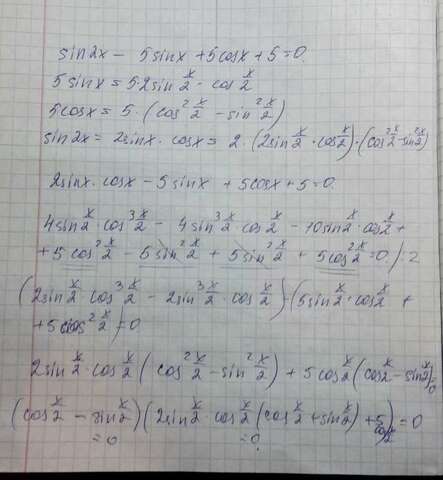 sin2x - 5sinx + 5cosx + 5 = 0.
5sinx = 5·2sin x/2 · cos x/2
5cosx = 5·(cos² x/2 - sin² x/2)
sin2x = 2sinx·cosx = 2·(2sin x/2 · cos x/2)·(cos² x/2 - sin² x/2)
2sinx·cosx - 5sinx + 5cosx + 5 = 0.
4sin x/2 · cos³ x/2 - 4sin³ x/2 cos x/2 - 10sin x/2 · cos x/2 +
+ 5cos² x/2 - 5sin² x/2 + 5sin² x/2 + 5cos² x/2 = 0 /:2
(2sin x/2 · cos³ x/2 - 2sin³ x/2 · cos x/2) - (5sin x/2 · cos x/2 +
+ 5cos² x/2) = 0
2sin x/2 · cos x/2 (cos² x/2 - sin² x/2) + 5cos x/2 (cos x/2 - sin x/2) = 0
(cos x/2 - sin x/2)(2sin x/2 · cos x/2 (cos x/2 + sin x/2) + 5cos x/2) = 0
=0 =0